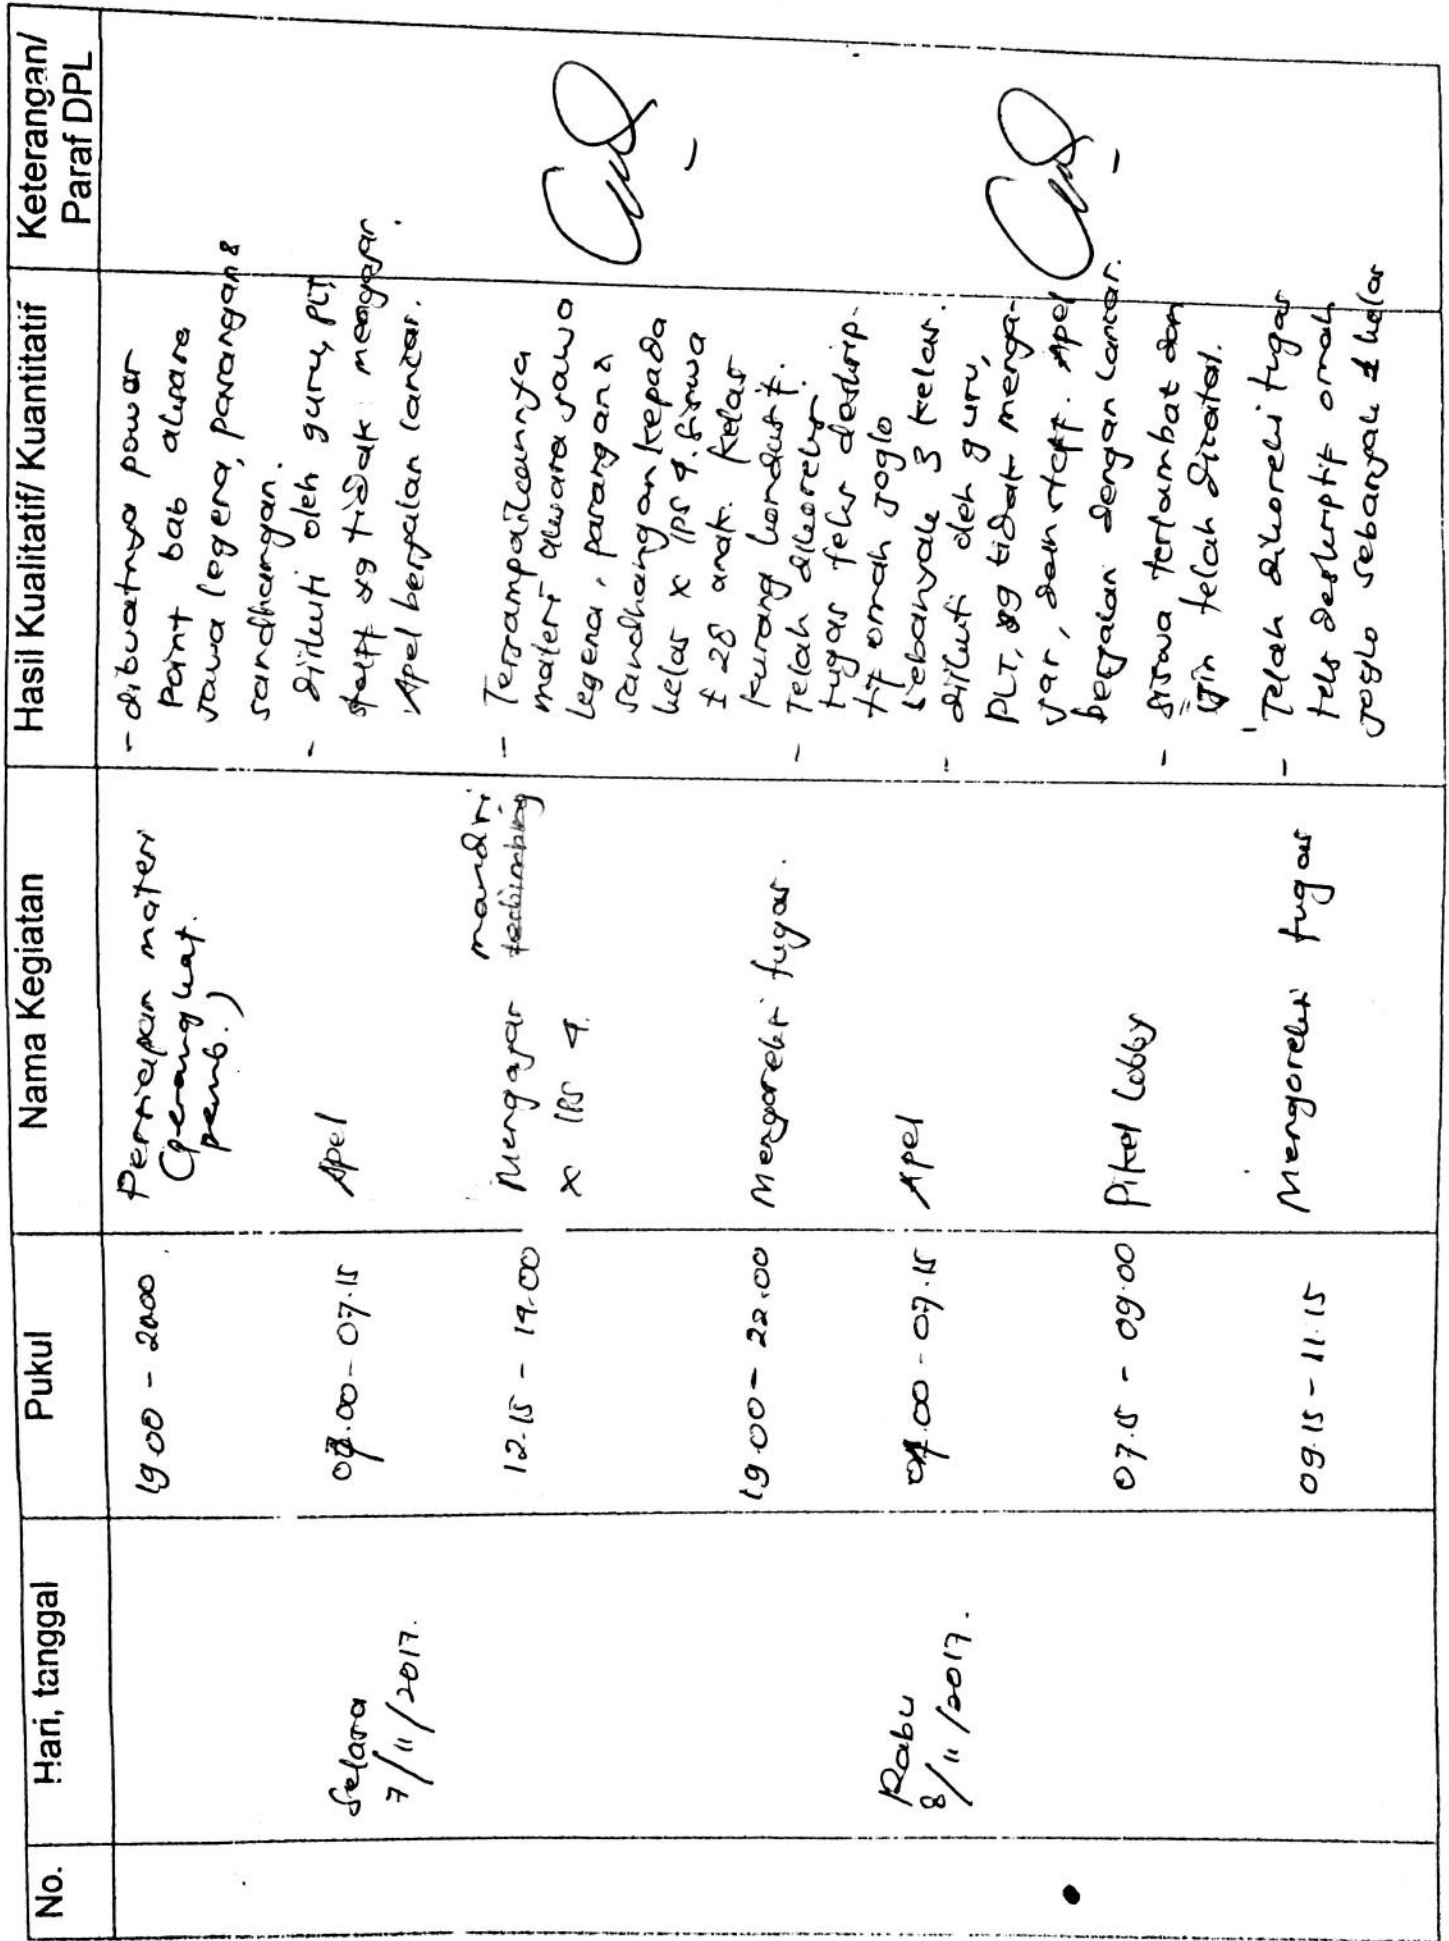 No.
Hari, tanggal
Pukul
Nama Kegiatan
Hasil Kualitatif/ Kuantitatif
Keterangan/
Paraf DPL
19.00 - 20.00
Persiapan materi
(perangkat
pemb.)
- dibuatnya power
point bab aksara
Jawa legena, pasangan &
sandhangan.
Selasa
7/11/2017.
07.00 - 07.15
Apel
- diikuti oleh guru, PLT,
staff yg tidak mengajar.
Apel berjalan lancar.
12.15 - 14.00
mandiri
Mengajar terbimbing
X IPS 4.
- Tersampaikannya
materi aksara jawa
legena, pasangan &
sandhangan kepada
kelas X IPS 4. Siswa
± 28 anak. Kelas
kurang kondusif.
19.00 - 22.00
Mengoreksi tugas.
- Telah dikoreksi
tugas teks deskrip-
tif omah joglo
sebanyak 3 kelas.
Rabu
8/11/2017.
07.00 - 07.15
Apel
- diikuti oleh guru,
PLT, yg tidak menga-
jar, dan staff. Apel
berjalan dengan lancar.
07.15 - 09.00
Piket Lobby
- siswa terlambat dan
ijin telah dicatat.
09.15 - 11.15
Mengoreksi tugas
- Telah dikoreksi tugas
teks deskriptif omah
joglo sebanyak 1 kelas